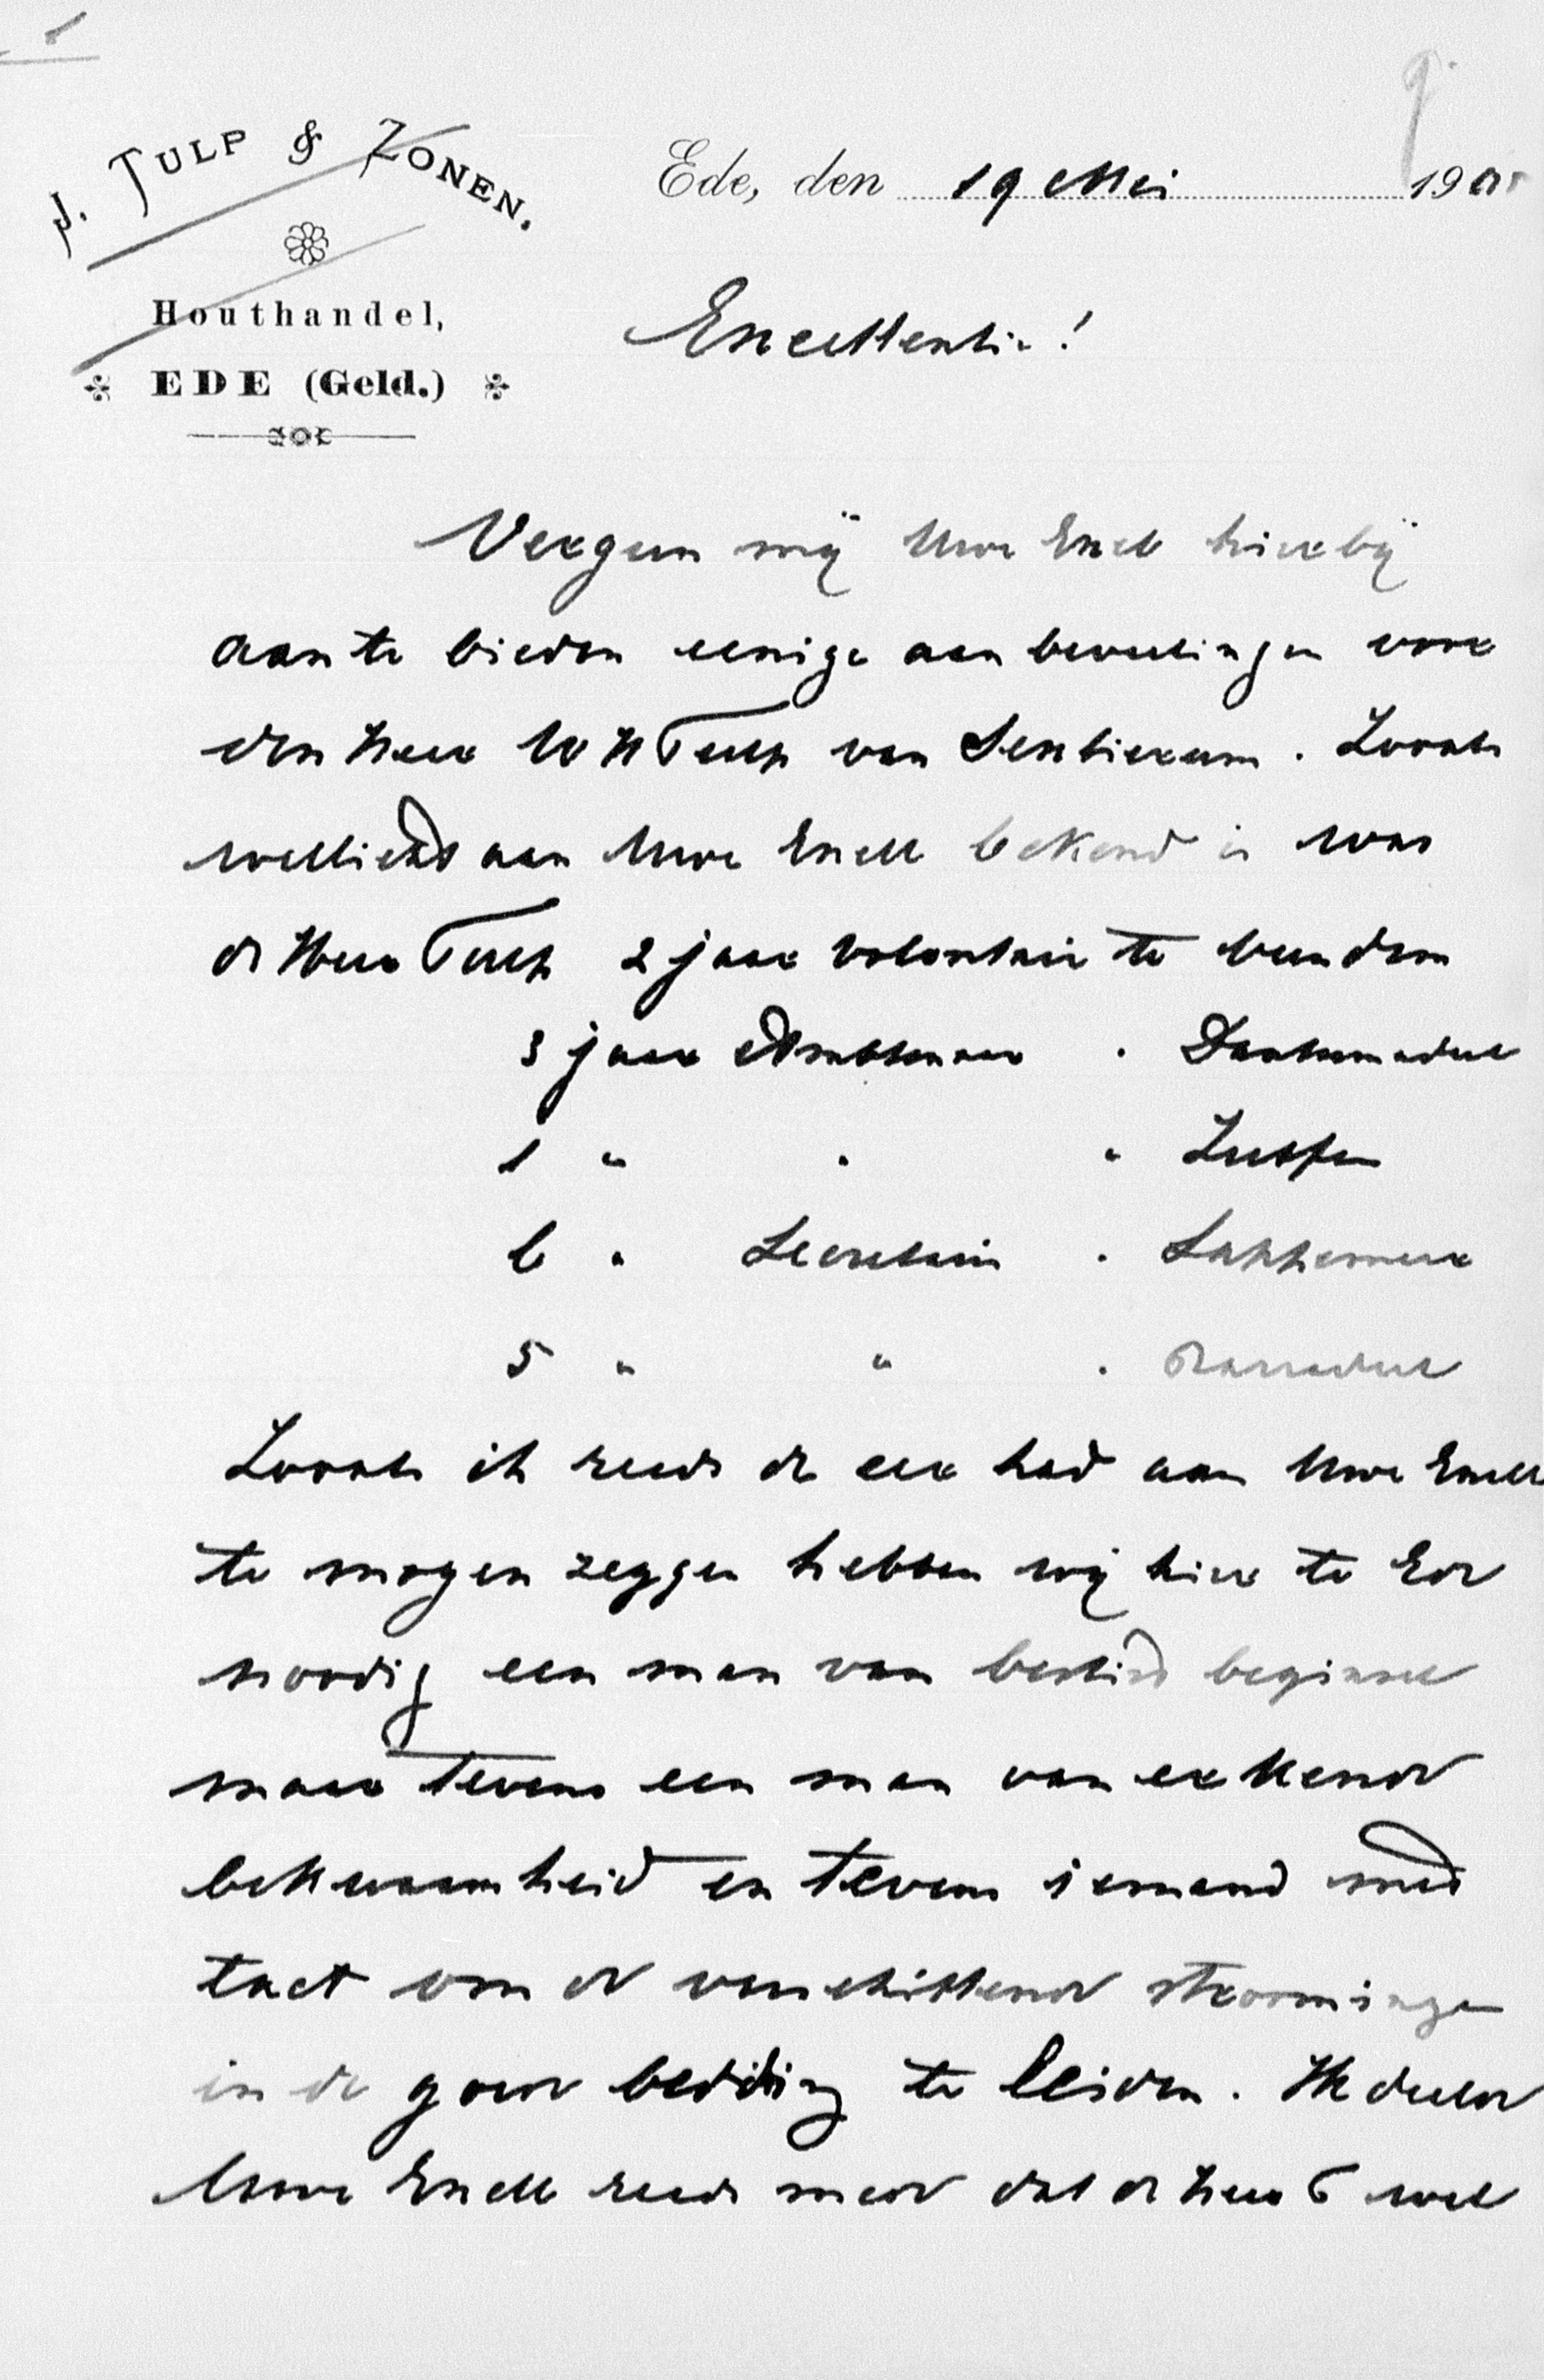 J. TULP & ZONEN.
Houthandel,
EDE (Geld.)
Ede, den 19 Mei 190
Excellentie!
Vergun mij Uwe Excell hierbij
aan te bieden eenige aanbevelingen voor
den Heer W H Tulp van Sextierum. Zooals
wellicht aan Uwe Excell bekend is was
de Heer Tulp 2 jaar volontair te Leur dan
3 jaar Ambtenaar " Dantumadeel
1 " " " Zutfen
6 " Secretaris " Sappemeer
5 " " " Barradeel
Zooals ik reeds de eer had aan Uwe Excell
te mogen zeggen hebben wij hier te Ede
noodig een man van beslist beginsel
maar tevens een man van erkende
bekwaamheid en tevens iemand met
tact om de verschillende stroomingen
in de goede bedding te leiden. Ik deelde
Uwe Excell reeds mede dat de heer T wel